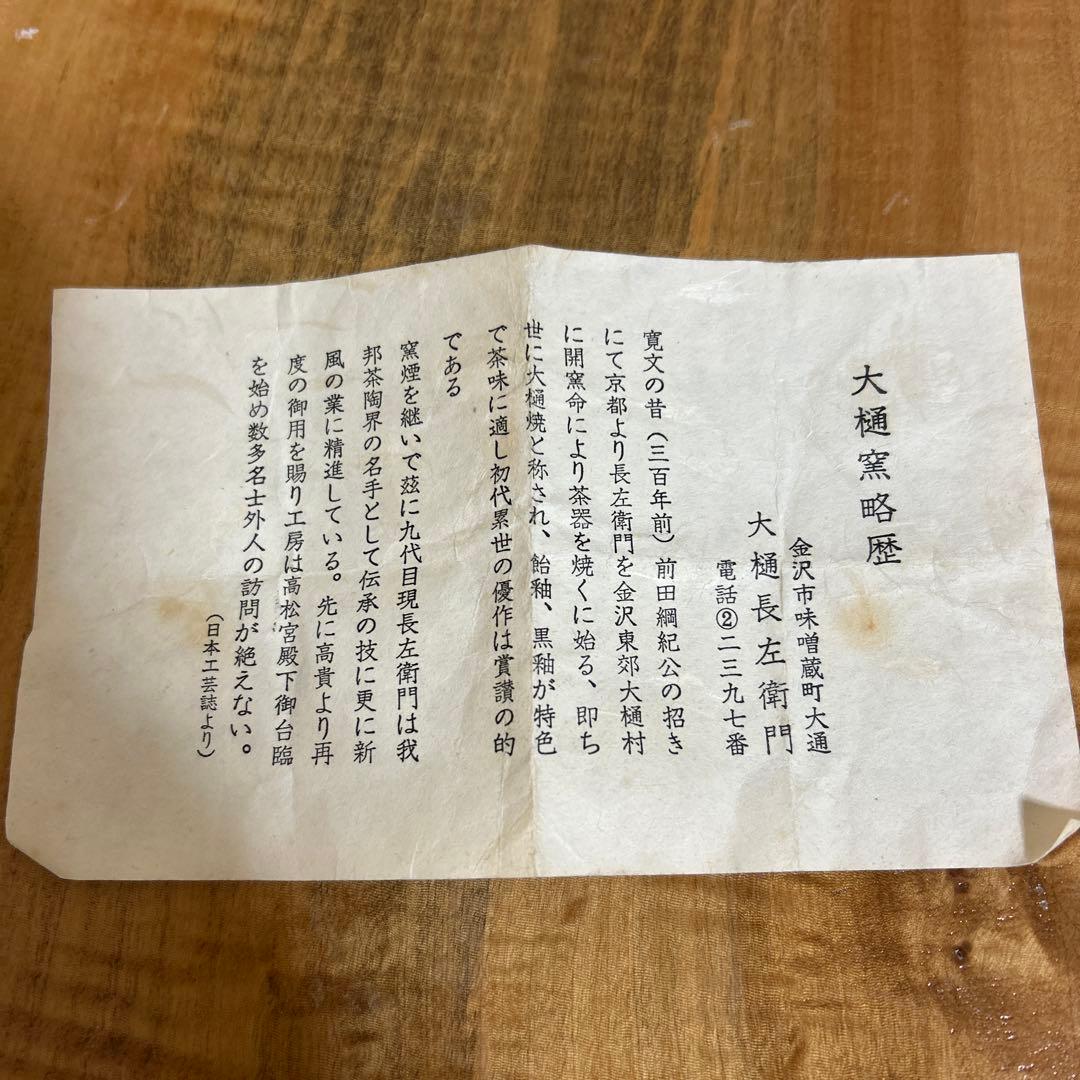 大樋窯略歴
金沢市味噌蔵町大通
大樋長左衛門
電話②二三九七番
寛文の昔（三百年前）前田綱紀公の招き
にて京都より長左衛門を金沢東郊大樋村
に開窯命により茶器を焼くに始る、即ち
世に大樋焼と称され、飴釉、黒釉が特色
で茶味に適し初代累世の優作は賞讃の的
である
窯煙を継いで玆に九代目現長左衛門は我
邦茶陶界の名手として伝承の技に更に新
風の業に精進している。先に高貴より再
度の御用を賜り工房は高松宮殿下御台臨
を始め数多名士外人の訪問が絶えない。
（日本工芸誌より）